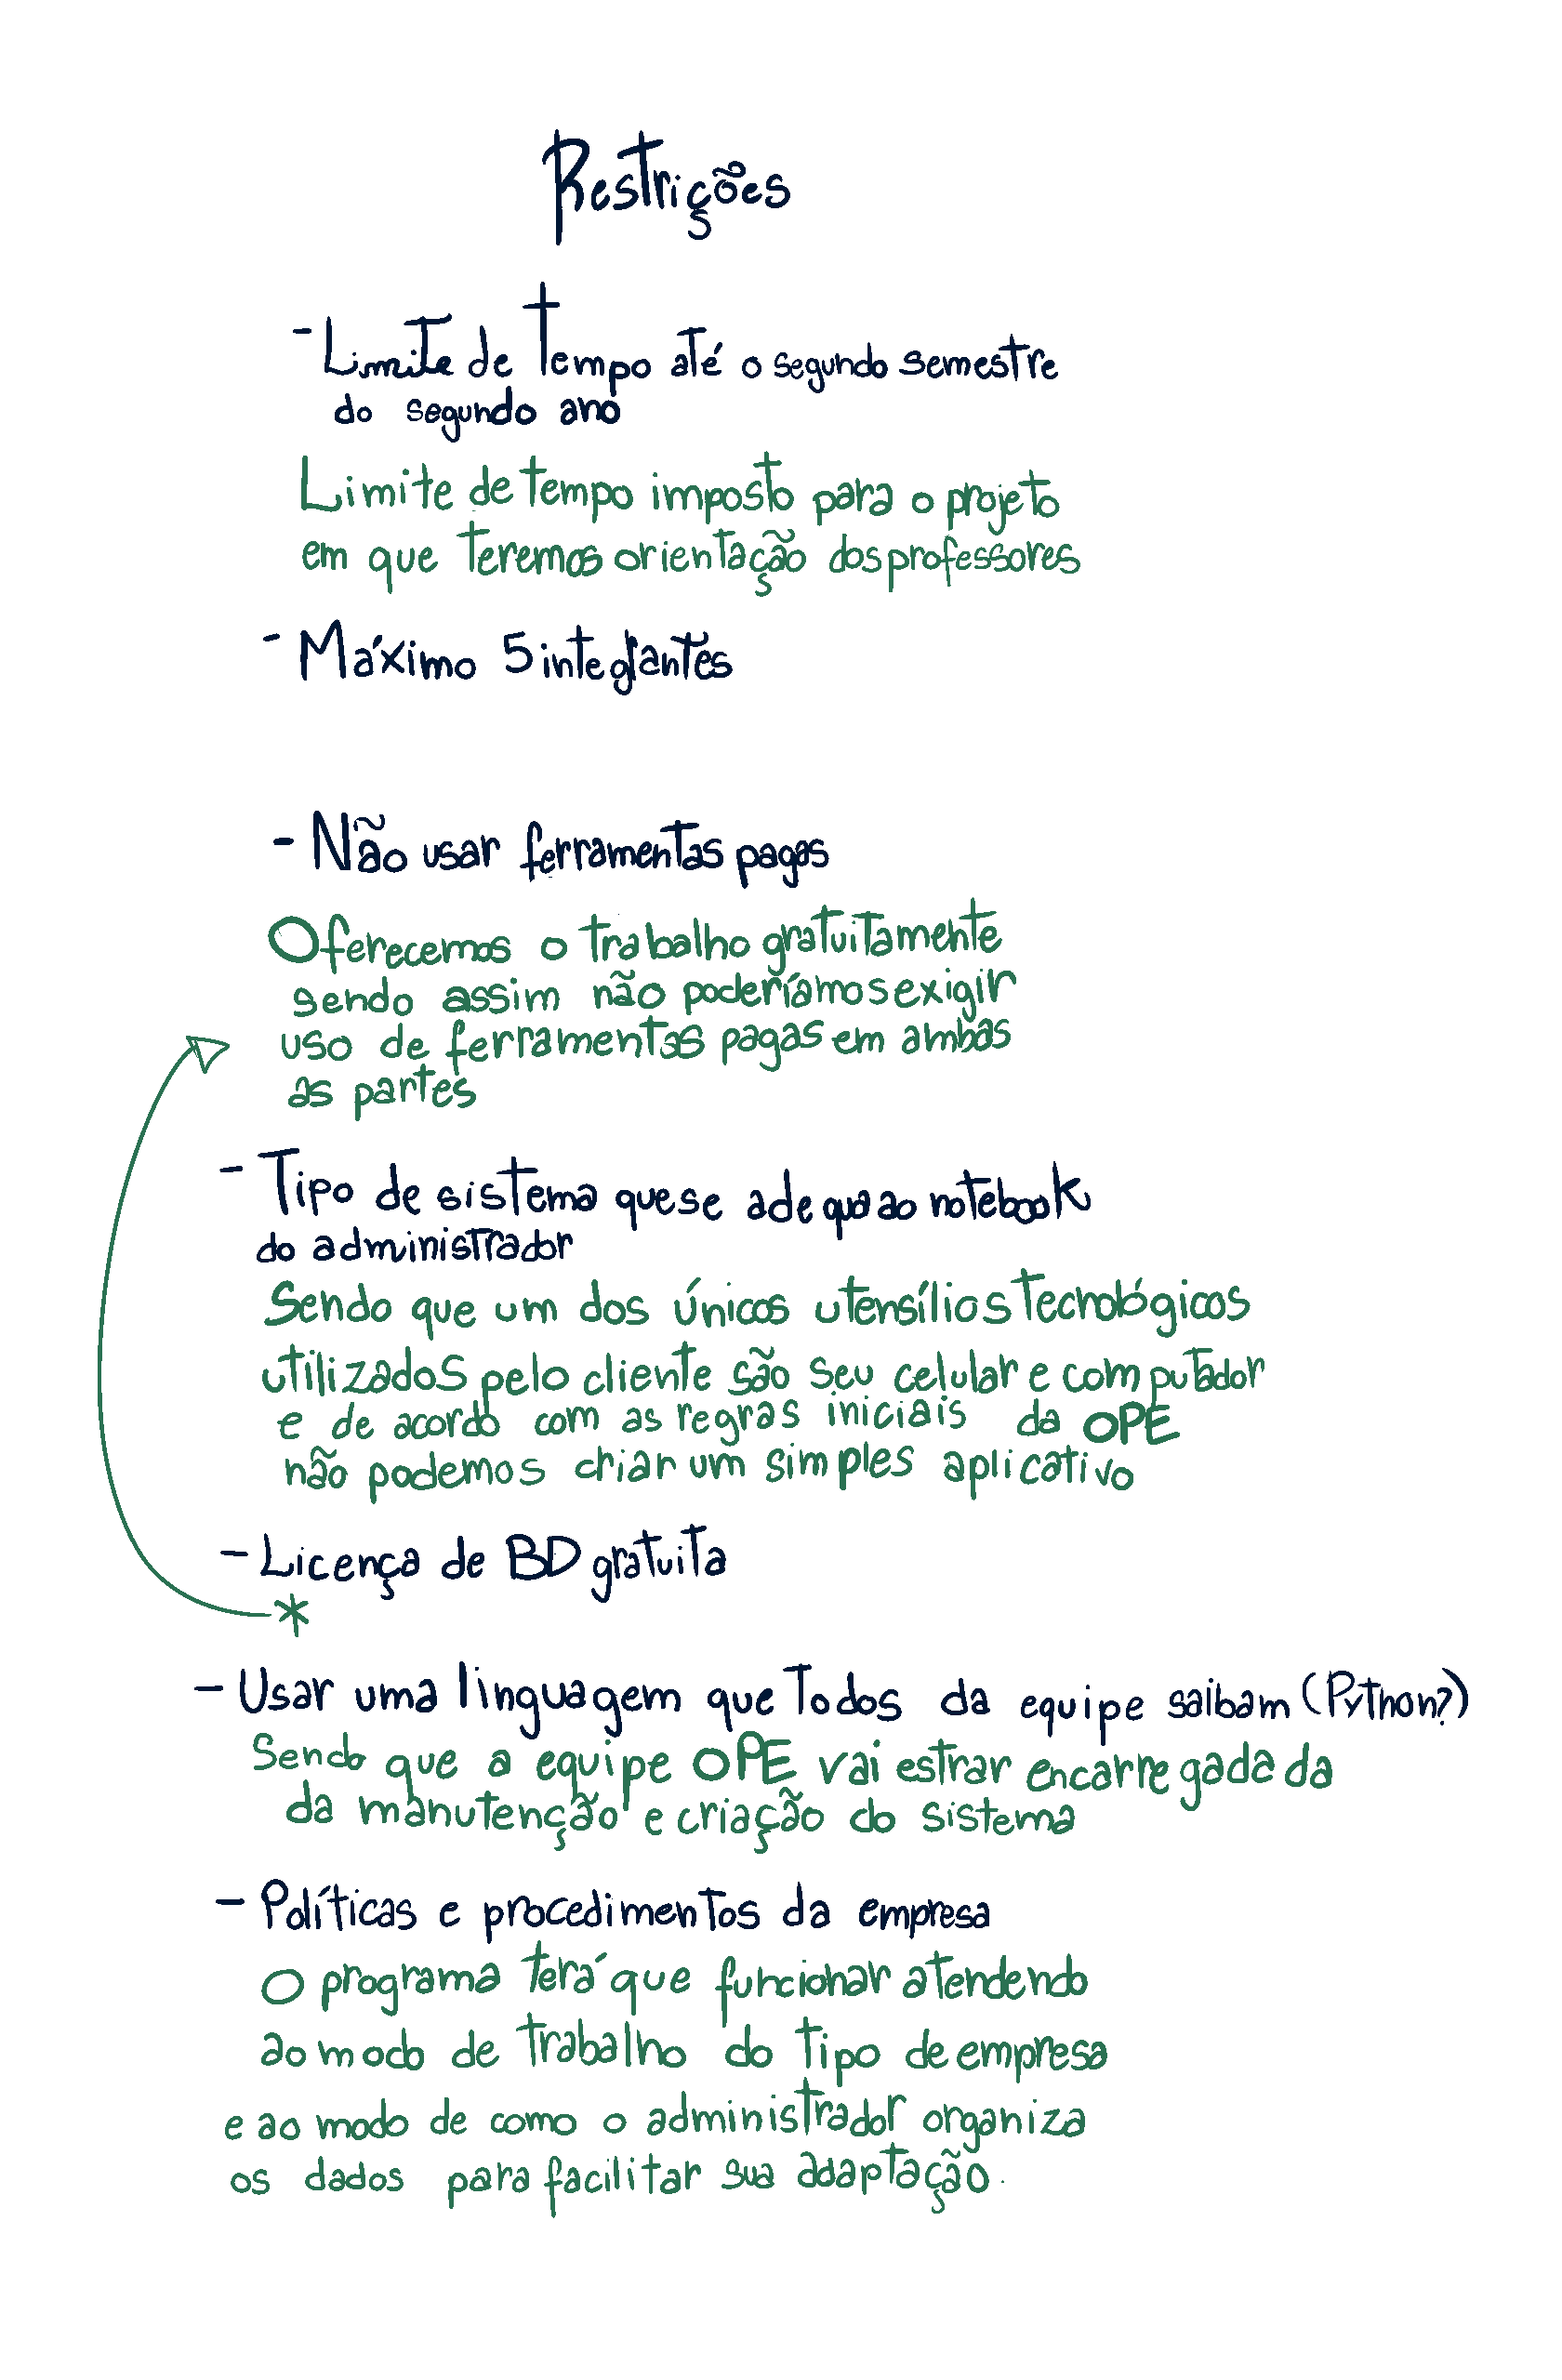 Restrições
- Limite de tempo até o segundo semestre
do segundo ano
Limite de tempo imposto para o projeto
em que teremos orientação dos professores
- Máximo 5 integrantes
- Não usar ferramentas pagas
Oferecemos o trabalho gratuitamente
sendo assim não poderíamos exigir
uso de ferramentas pagas em ambas
as partes
- Tipo de sistema que se adequa ao notebook
do administrador
Sendo que um dos únicos utensílios tecnológicos
utilizados pelo cliente são seu celular e computador
e de acordo com as regras iniciais da OPE
não podemos criar um simples aplicativo
- Licença de BD gratuita
*
- Usar uma linguagem que todos da equipe saibam (Python?)
Sendo que a equipe OPE vai estrar encarregada da
da manutenção e criação do sistema
- Políticas e procedimentos da empresa
O programa terá que funcionar atendendo
ao modo de trabalho do tipo de empresa
e ao modo de como o administrador organiza
os dados para facilitar sua adaptação.